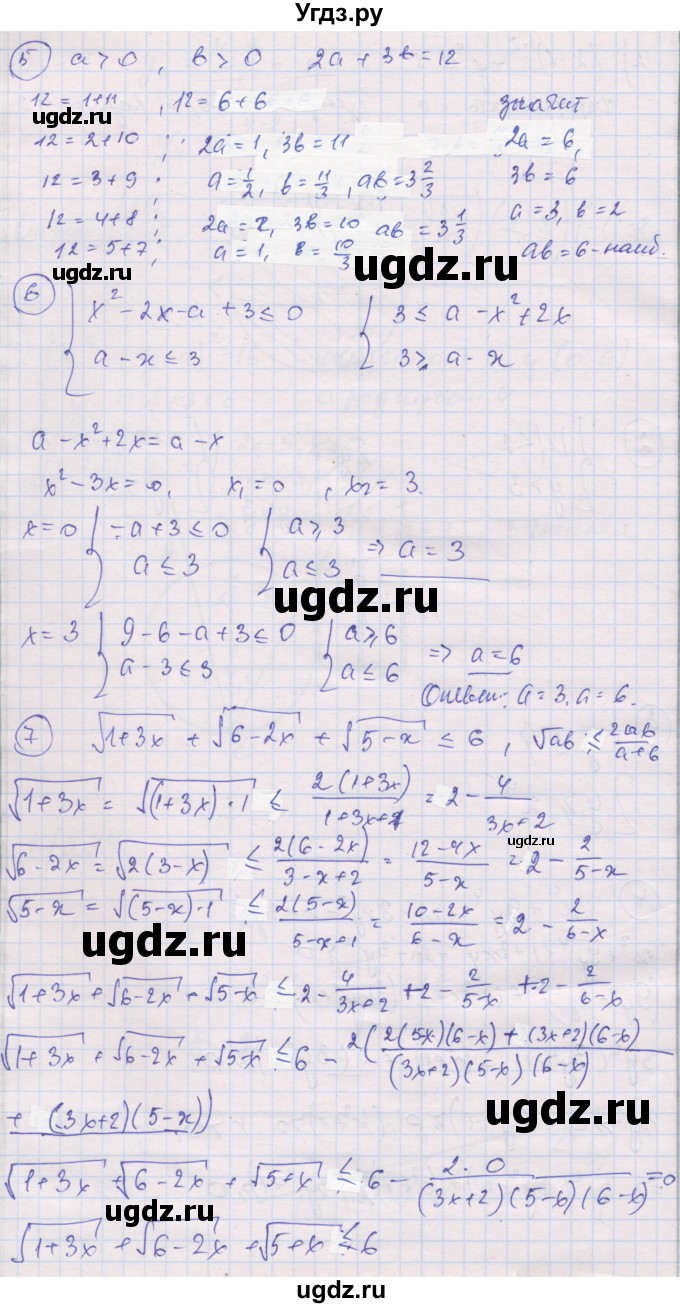 Угдз.ру
5) a > 0, b > 0   2a + 3b = 12
12 = 1+11, 12 = 6+6   значит
12 = 2+10;   2a = 1, 3b = 11   2a = 6,
12 = 3+9;   a = 1/2, b = 11/3, ab = 3 2/3   3b = 6
12 = 4+8;   2a = 2, 3b = 10   ab = 3 1/3   a = 3, b = 2
12 = 5+7;   a = 1, b = 10/3   ab = 6 - наиб.
uigdz.ru
6) { x² - 2x - a + 3 ≤ 0   { 3 ≤ a - x² + 2x
{ a - x ≤ 3   { 3 ≥ a - x
a - x² + 2x = a - x
x² - 3x = 0, x₁ = 0, x₂ = 3.
x = 0 { -a + 3 ≤ 0   { a ≥ 3
{ a ≤ 3   { a ≤ 3   ⇒ a = 3
uigdz.ru
x = 3 { 9 - 6 - a + 3 ≤ 0   { a ≥ 6
{ a - 3 ≤ 3   { a ≤ 6   ⇒ a = 6
Ответ: a = 3, a = 6.
7) √(1+3x) + √(6-2x) + √(5-x) ≤ 6, √ab ≤ 2ab/(a+b)
√(1+3x) = √((1+3x)·1) ≤ 2(1+3x)/(1+3x+1) = 2 - 4/(3x+2)
√(6-2x) = √(2(3-x)) ≤ 2(6-2x)/(3-x+2) = (12-4x)/(5-x) = 2 - 2/(5-x)
√(5-x) = √((5-x)·1) ≤ 2(5-x)/(5-x+1) = (10-2x)/(6-x) = 2 - 2/(6-x)
uigdz.ru
√(1+3x) + √(6-2x) + √(5-x) ≤ 2 - 4/(3x+2) + 2 - 2/(5-x) + 2 - 2/(6-x)
√(1+3x) + √(6-2x) + √(5-x) ≤ 6 - 2(2(5x)(6-x) + (3x+2)(6-x)
(3x+2)(5-x)(6-x)
+ (3x+2)(5-x))
uigdz.ru
√(1+3x) + √(6-2x) + √(5+x) ≤ 6 - 2·0/((3x+2)(5-x)(6-x)) = 0
√(1+3x) + √(6-2x) + √(5+x) ≤ 6
uigdz.ru